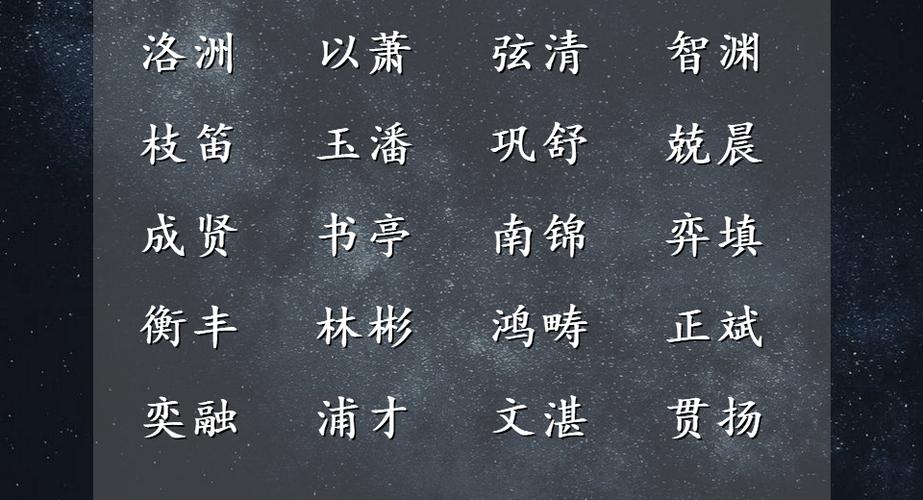 洛洲 以萧 弦清 智渊
枝笛 玉潘 巩舒 兢晨
成贤 书亭 南锦 弈填
衡丰 林彬 鸿畴 正斌
奕融 浦才 文湛 贯扬